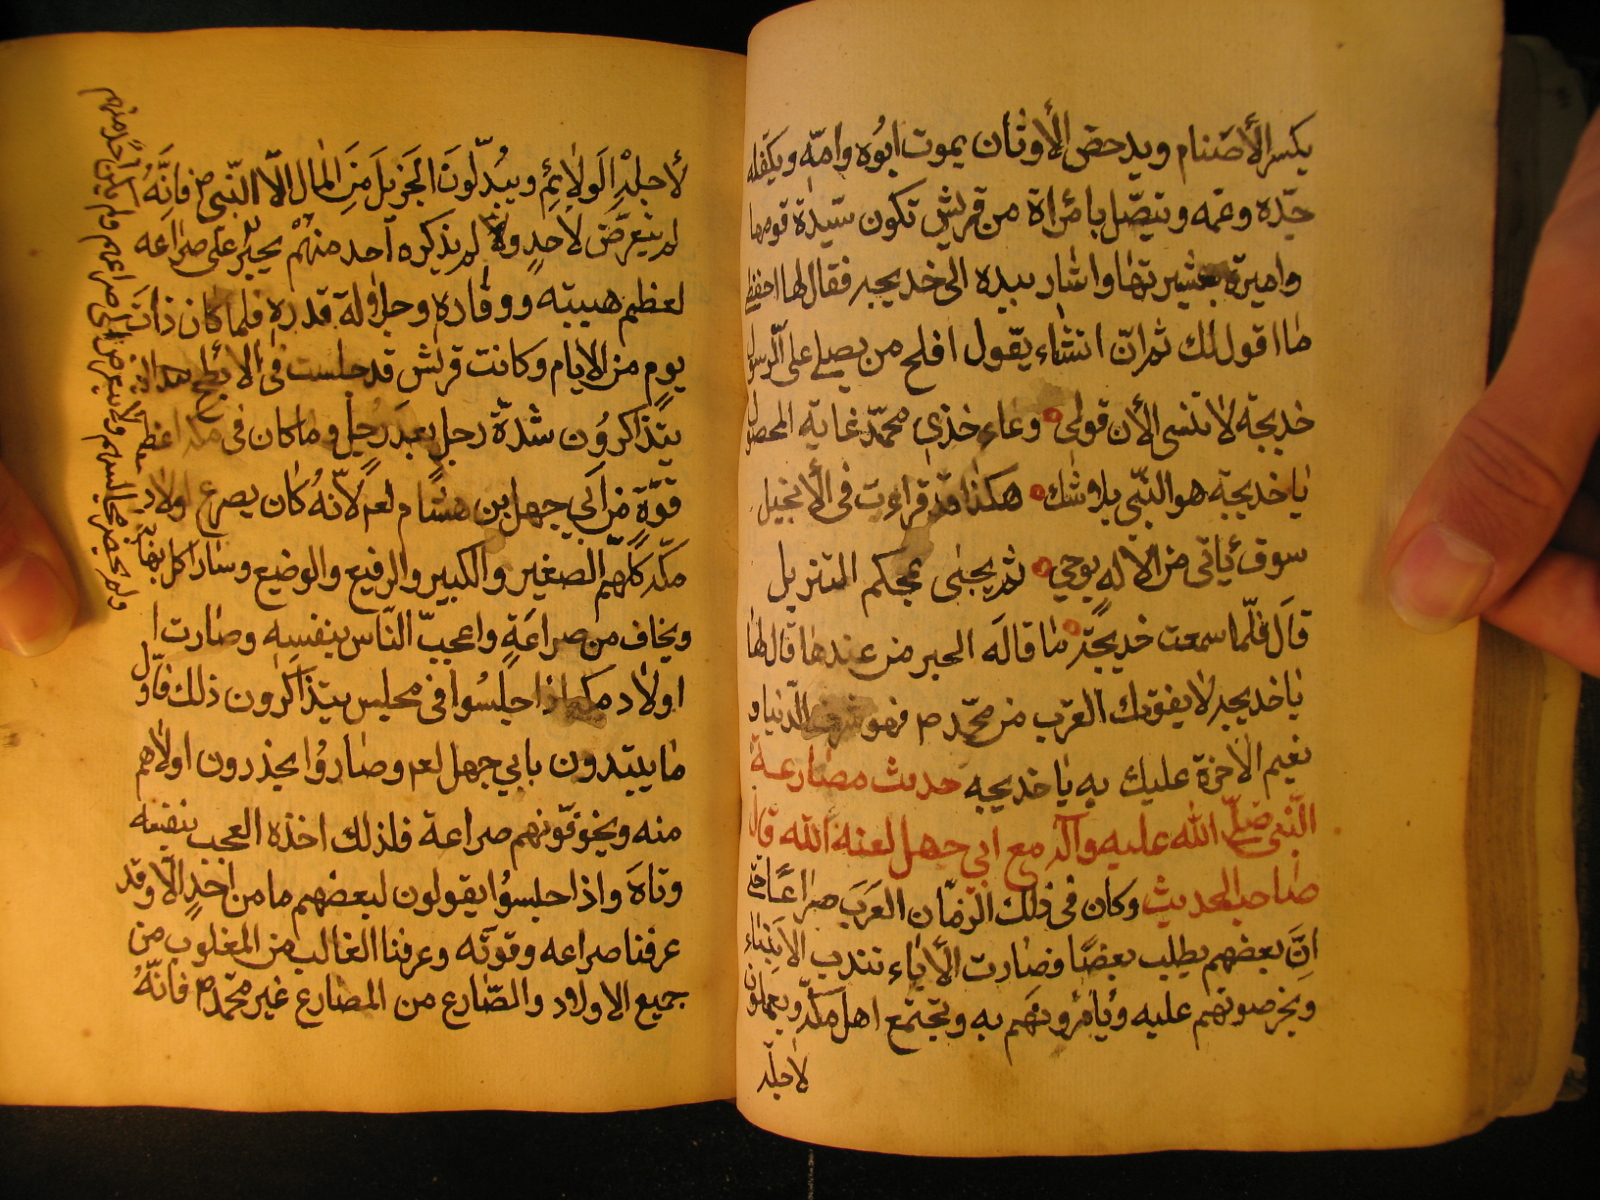 يكسر الأصنام ويدحض الأوثان يموت ابوه وامّه ويكفله
جدّه وعمه ويتصّل بامراة من قريش تكون سيّدة قومها
واميرة عشيرتها واشار بيده الى خديجه فقال لها احفظى
ما اقول لك ثم انّ انشاء يقول افلح من يصلى على الرسول
خديجة لا تنسى الأن قولى وعاء خذى محمّد غاية المحصول
يا خديجة هو النبّى بلا شك هكذا قد قراءت فى الأنجيل
سوف ياتى من الاله بوحي ثم يجبى بمحكم التنزيل
قال فلمّا سمعت خديجة ما قاله الحبر من عندها قال لها
يا خديجه لا يفوتك القرب من محمّد ص فهو شرف الدّنيا و
نعيم الاخرة عليك به يا خديجه حديث مصارعة
النّبى صلّى الله عليه وآله مع ابي جهل لعنه الله قال
صاحب الحديث وكان فى ذلك الزمّان العرب صراعًا حتى
انّ بعضهم يطلب بعضًا فصارت الأباء تندب الابناء
ويحرصونهم عليه ويأمرونهم به وتجتمع اهل مكّه ويعملون
لاجله
لأجله الولائم ويبذّلون الجزيل من المال الّا النّبى ص فانّه
لم يتعرّض لأحدٍ ولم يذكره احد منهم يحبّر على صراعه
لعظم هيبته ووقاره وجلالة قدره فلما كان ذات
يوم من الايام وكانت قريش قد جلست فى الابطح
يتذاكرون شدّة رجل بعد رجل وما كان فى
قوّة من ابي جهل بن هشام لعم لأنّه كان يصرع اولاد
مكّه كلّهم الصغير والكبير والرفيع والوضيع وسار كل
ويخاف من صراعة واعجب النّاس بنفسه وصارت
اولاد مكه اذا جلسوا فى مجلس يتذاكرون ذلك فاوّل
ما يبتدون بابي جهل لعم وصاروا يحذرون اولادهم
منه ويخوفونهم صراعة فلذلك اخذه العجب بنفسه
وتاه واذا جلسوا يقولون لبعضهم ما من احدٍ الّا وقد
عرفنا صراعه وقوّته وعرفنا الغالب من المغلوب من
جميع الاولاد والصّارع من المصارع غير محمّد ص فانّه